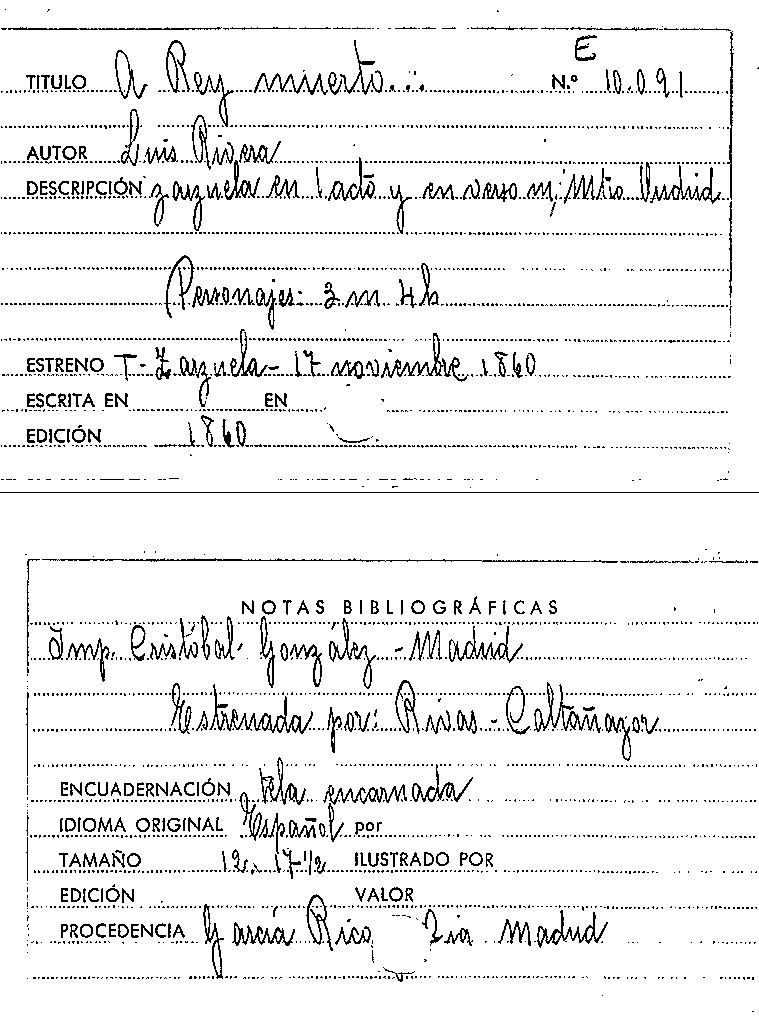 E
TITULO A Rey muerto... N.º 10.091
AUTOR Luis Rivera
DESCRIPCIÓN zarzuela en 1 acto y en verso m; Mtro Oudrid
Personajes: 3 m 4 h
ESTRENO T- Zarzuela - 17 noviembre 1860
ESCRITA EN EN
EDICIÓN 1860
NOTAS BIBLIOGRÁFICAS
Imp. Cristóbal González - Madrid
Estrenada por: Rivas - Caltañazor
ENCUADERNACIÓN tela encarnada
IDIOMA ORIGINAL Español por
TAMAÑO 12 17½ ILUSTRADO POR
EDICIÓN VALOR
PROCEDENCIA García Rico Madrid